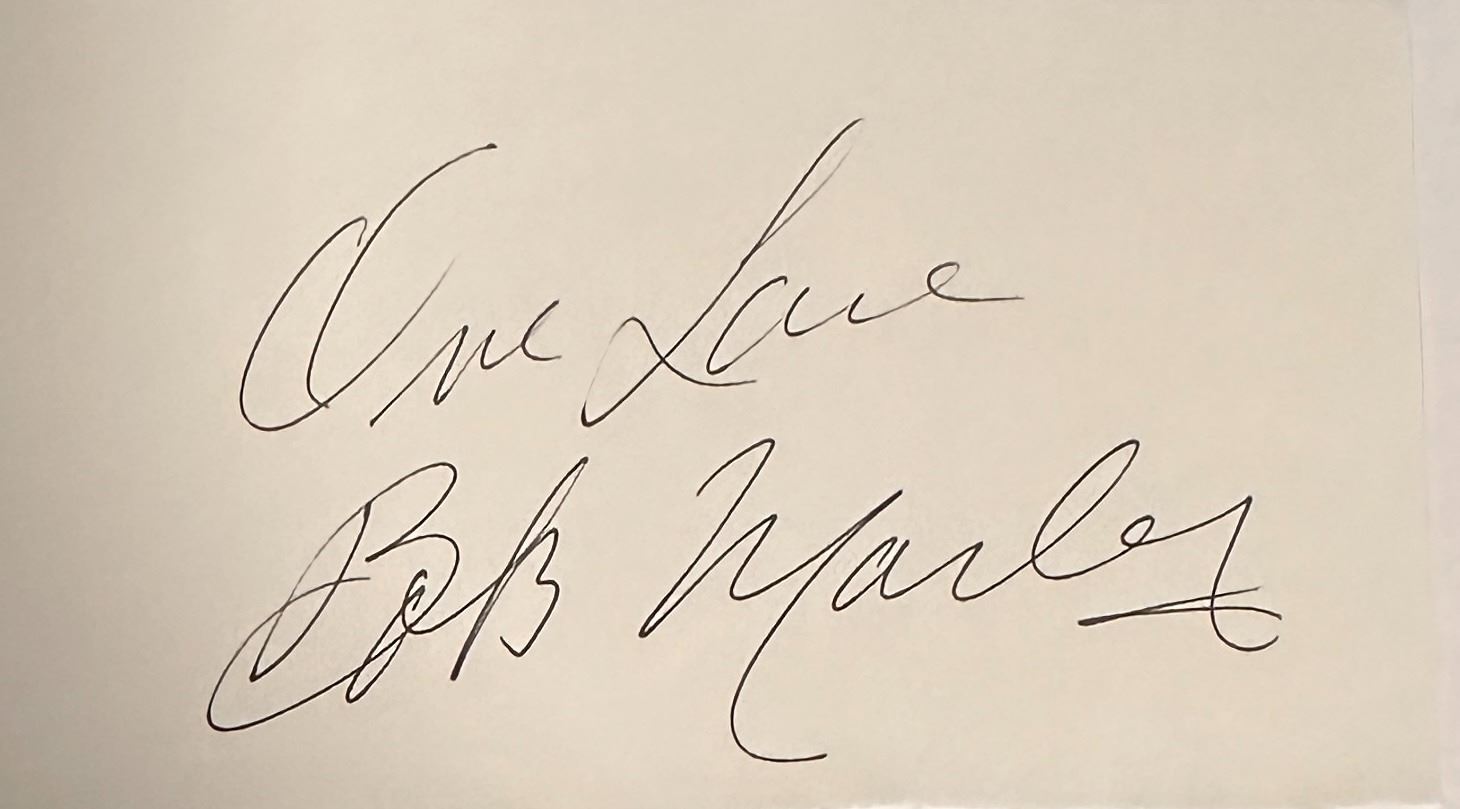 One Love
Bob Marley